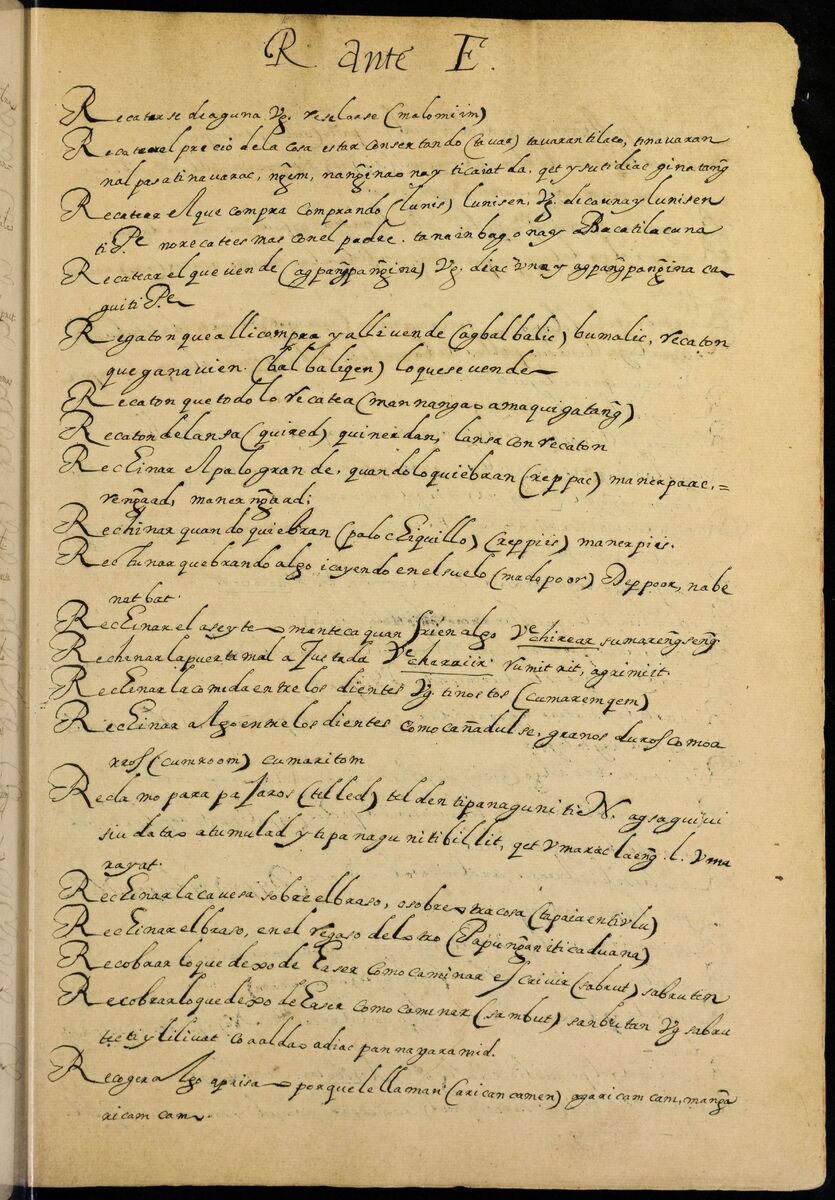 R ante E.
Recatarse de aguna Vg. reselarse (malomiim)
Recatear el precio de la cosa estar consertando (tavar) tavarantilaeo, tinavaran
nal pasatinavarac, ngem, nangina nay ticaiatda, qet y sutidiac ginatang
Recatear el que compra comprando (lunis) lunisen, Vg. dicaunay lunisen
ti Pe. no recatees mas con el padre. tanainbag onay Bacatilacuna
Recatear el que vende (agpangpangina) Vg. diac Vnay agpangpangina ca
quiti Pe
Regaton que alli compra y alli vende (agbalbalic) bumalic, recaton
que gana vien. (balbaliqen) lo que se vende
Recaton que todo lo recatea (mannanga amaquigatang)
Recaton de lansa (quired) quinerdan, lansa con recaton
Rechinar el palo grande, quando lo quiebran (reppac) manerpaac, =
rengaad, manerngaad;
Rechinar quando quiebran (palo chiquillo) (reppies) manerpies.
Rechinar quebrando algo i cayendo en el suelo (madepoor) Deppoor, nabe
natbat.
Rechinar el aseyte manteca quan frien algo Ve chirear sumarengseng
Rechinar la puerta mal ajustada Ve charaiir rumitrit, agrimiit.
Rechinar la comida entre los dientes Vg. tinostos (cumaremqem)
Rechinar algo entre los dientes como caña dulse, granos duros como a
rros (cumroom) cumaritom
Reclamo para pajaros (telled) telden tipanagunitie N. agsaguiui
siudata atumulad y tipanagunitibillit, qet Vmaraclaeng. l. Vma
rayat.
Reclinar la cavesa sobre el braso, o sobre otra cosa (tapaia entivlu)
Reclinar el braso, en el regaso del otro (Papunganiticaduana)
Recobrar lo que dexo de haser como caminar escrivir (sabrut) sabruten
Recobrar lo que dexo de haser como caminar (sambut) sanbutan Vg sabru
tecti y lilivat coaalda adiac pannayaramid.
Recoger algo aprisa porque le llaman (aricancamen) agaricamcam, manga
ricamcam.